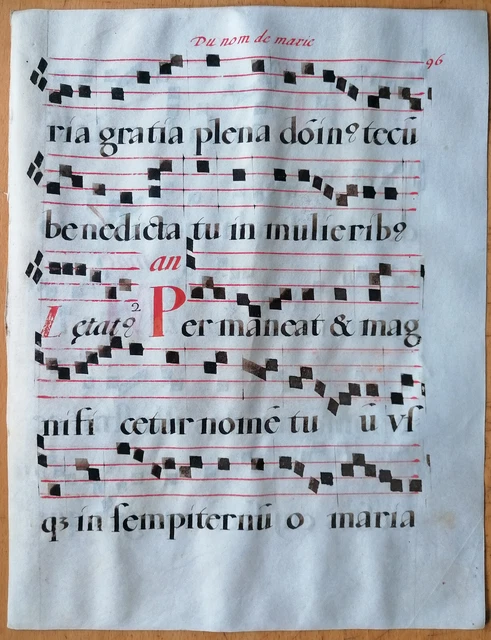 Du nom de marie
96
ria gratia plena dōinꝰ tecū
benedicta tu in mulieribꝰ
an
Lętatꝰ 2 Per maneat & mag
nifi cetur nomē tu ū vſ
qꝫ in ſempiternū o maria